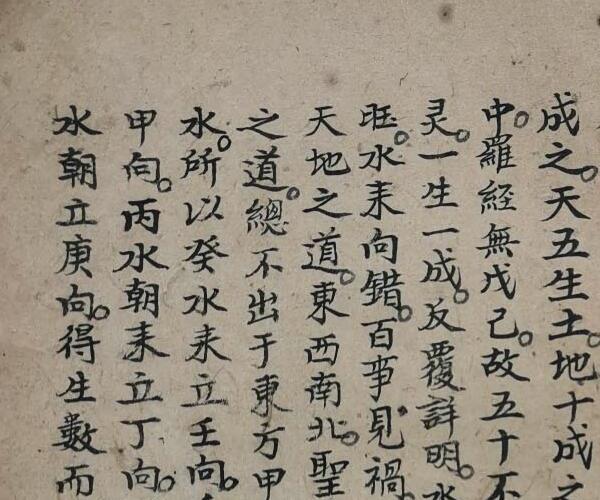 成之。天五生土。地十成之
中。羅経無戊己。故五十不
灵。一生一成。反覆詳明。水
旺。水来向錯。百事見禍。
天地之道。東西南北。聖
之道。總不出于東方甲
水。所以癸水来立壬向。
甲向。丙水朝来立丁向。
水朝立庚向。得生數而